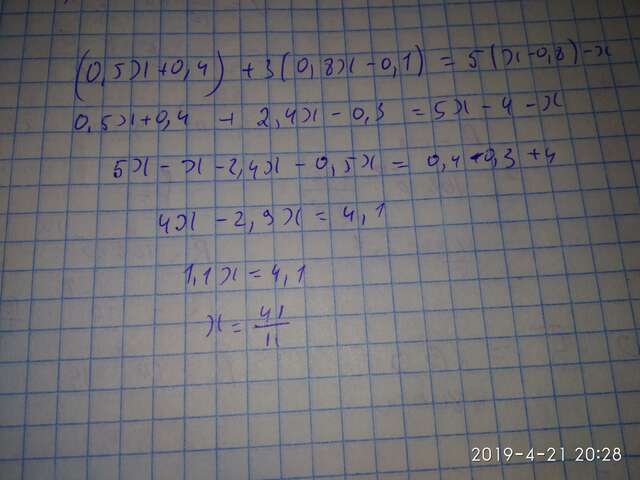 (0,5x+0,4) + 3(0,8x-0,1) = 5(x-0,8)-x
0,5x+0,4 + 2,4x-0,3 = 5x-4-x
5x-x-2,4x-0,5x = 0,4-0,3+4
4x-2,9x = 4,1
1,1x = 4,1
x = 41/11
2019-4-21 20:28